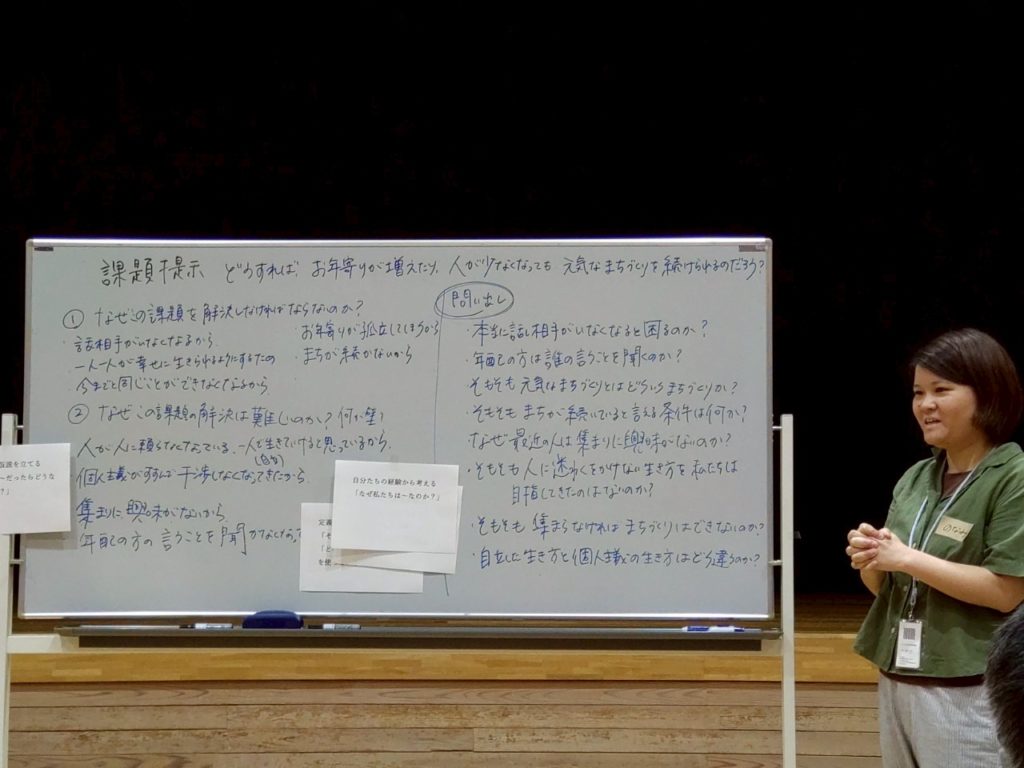 課題提示 どうすれば、お年寄りが増えたり、人が少なくなっても元気なまちづくりを続けられるのだろう?
① なぜこの課題を解決しなければならないのか?
・話相手がいなくなるから
・一人一人が幸せに生きられるようにするため
・今までと同じことができなくなるから
・お年寄りが孤立してしまうから
・まちが続かないから
② なぜこの課題の解決は難しいのか?何が壁
人が人に頼らなくなっている、一人で生きていけると思っているから、
(自分)
個人主義がすすんで干渉しなくなってきたから
集まりに興味がないから
年配の方の言うことを聞かなくなった
問い出し
・本当に話し相手がいなくなると困るのか?
・年配の方は誰の言うことを聞くのか?
・そもそも元気なまちづくりとはどういうまちづくりか?
・そもそもまちが続いていると言える条件は何か?
・なぜ最近の人は集まりに興味がないのか?
・そもそも人に迷惑をかけない生き方を私たちは
目指してきたのではないのか?
・そもそも集まらなければまちづくりはできないのか?
・自立した生き方と個人主義の生き方はどう違うのか?
仮説を立てる
〜だったらどうな
?」
自分たちの経験から考える
「なぜ私たちは〜なのか?」
定義
「そ
「ど
を使
のなみ